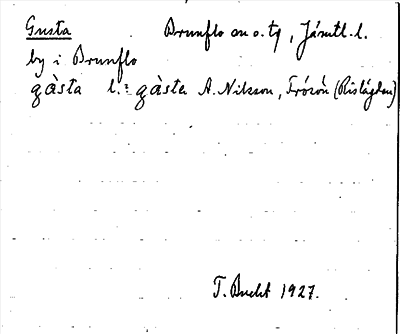 Gusta Brunflo sn o. tg, Jämtl. l.
by i Brunflo
gàsta l. gàsta A. Nilsson, Frösön (Rislägden)
T. Bucht 1927.